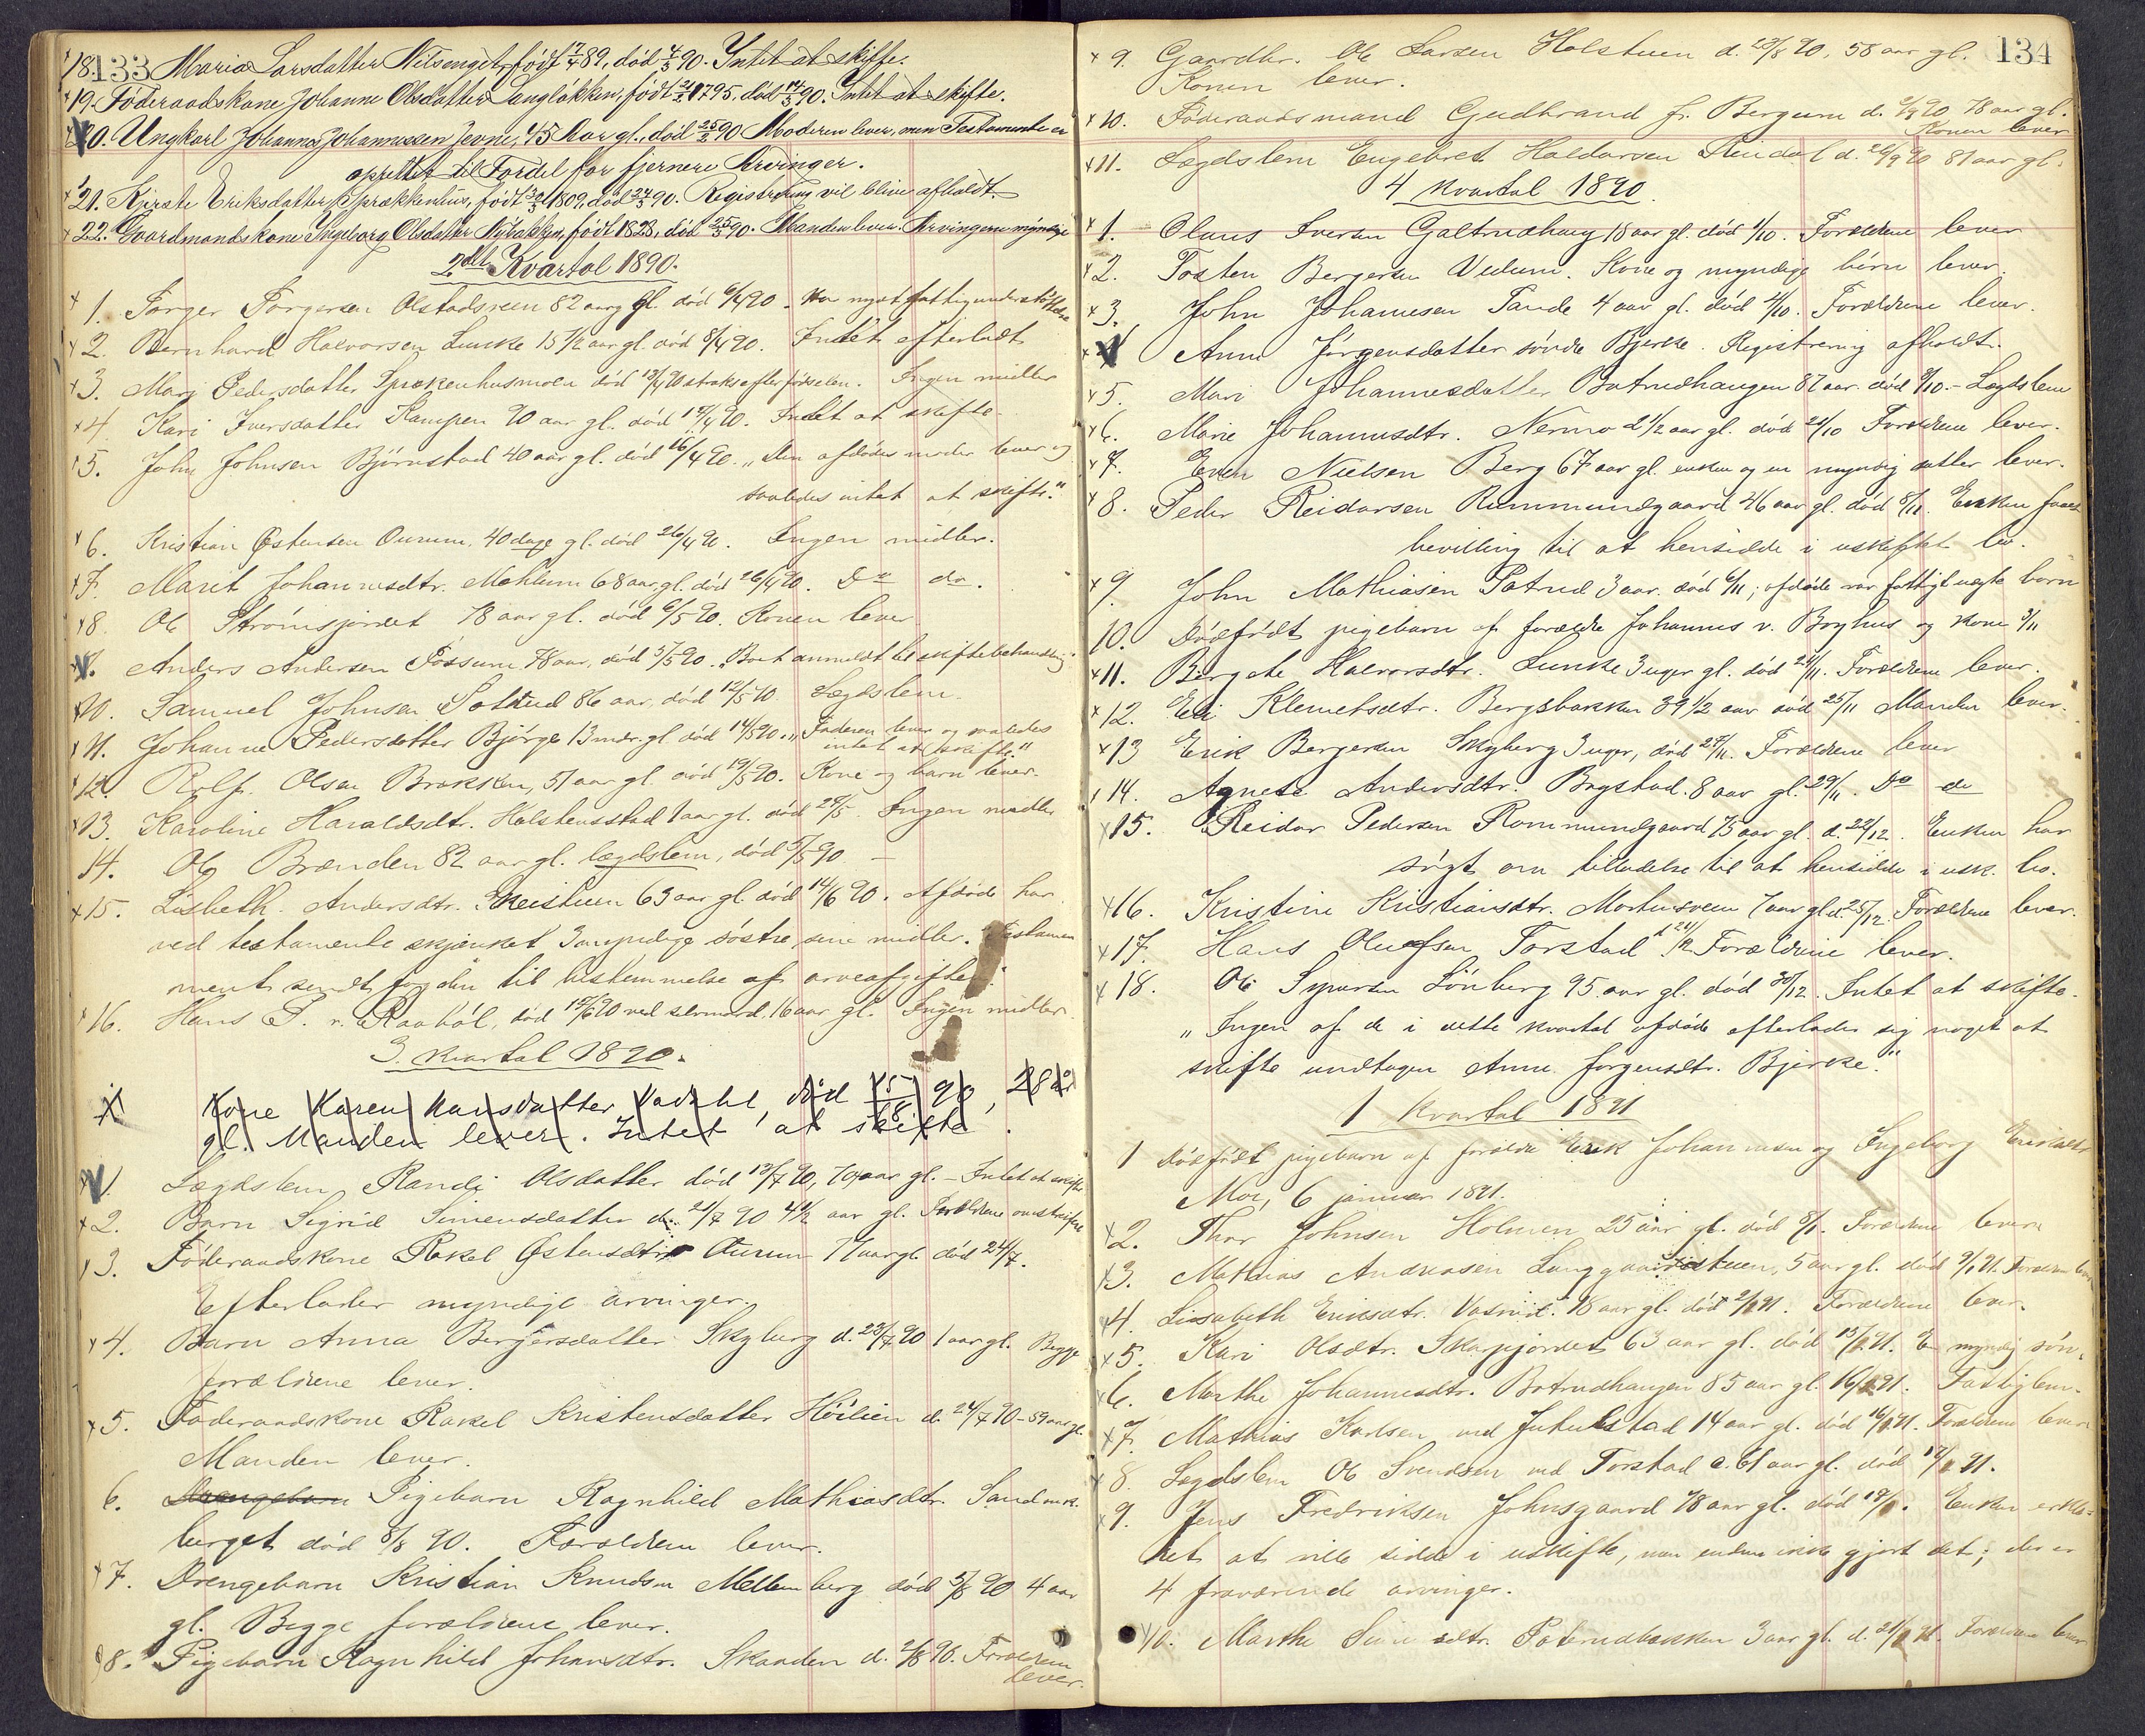 133
18. Maria Larsdatter Nilsenget, født 7/4 89, død 4/3 90. Intet at skifte.
19. Føderaadskone Johanne Olsdatter Langløkken, født 1795, død 14/3 90. Intet at skifte.
20. Ungkarl Johannes Johannessen Jevne, 45 Aar gl., død 25/2 90 Moderen lever, men Testamente er
oprettet til Fordel for fjernere Arvinger.
21. Kjirste Eriksdatter Sprækkenhus, født 1809, død 24/3 90. Registrering vil blive afholdt.
22. Gaardmandskone Ingeborg Olsdatter Nybakken, født 1828, død 25/3 90. Manden lever. Arvingerne myndige
2det Kvartal 1890.
1. Torger Torgersen Olstadsveen 82 aar gl. død 6/4 90. Har nydt fattigunderstøttelse
2. Bernhard Halvorsen Lunke 15 1/2 aar gl. død 8/4 90. Intet efterladt
3. Mari Pedersdatter Sprækenhusmoen død 13/4 90 straks efter fødselen. Ingen midler
4. Kari Iversdatter Kampen 90 aar gl. død 12/4 90. Intet at skifte.
5. John Johnsen Bjørnstad 40 aar gl. død 16/4 90. „Den afdødes moder lever og
saaledes intet at skifte."
6. Kristian Østensen Ourum, 40 dage gl. død 26/4 90. Ingen midler.
7. Marit Johannesdtr. Mæhlum 68 aar gl. død 26/4 90. Do do.
8. Ole Strømsjordet 78 aar gl. død 6/5 90. Konen lever
9. Anders Andersen Fossum 78 aar, død 3/5 90. „Boet anmeldt til skiftebehandling"
10. Samuel Johnsen Solerud 86 aar, død 12/5 90 Lægdslem.
11. Johanne Pedersdatter Bjørge 13 mdr. gl død 14/5 90. „Faderen lever og saaledes
intet at skifte."
12. Rolf Olsen Brækken, 51 aar gl. død 19/5 90. Kone og barn lever.
13. Karoline Haraldsdt. Holstensstad 1 aar gl. død 28/5. Ingen midler
14. Ole Brænden 82 aar gl. lægdslem, død 5/5 90 —
15. Lisbeth Andersdtr. Skeistuen 63 aar gl. død 14/6 90. Afdøde har
ved testamente skjænket 3 myndige søstre sine midler. Testamen
ment sendt fogden til bestemmelse af arveafgiften.
16. Hans P. v. Raabøl, død 19/6 90 ved selvmord. 16 aar gl. Ingen midler.
3. kvartal 1890.
1 Kone Karen Hansdatter Vadahl, død 15/8 90, 28 år
gl. Manden lever. Intet at skifte.
1. Lægdslem Randi Olsdatter død 13/7 90, 70 aar gl. - Intet at skifte
2. Barn Sigrid Simensdatter d. 21/7 90 4 1/2 aar gl. Forældrene
3. Føderaadskone Rakel Østensdtr Ourum 77 aar gl. død 24/7.
Efterlader myndige arvinger.
4. Barn Anna Bergersdatter Skyberg d. 23/7 90 1 aar gl. Begge
forældrene lever.
5. Føderaadskone Rakel Kristensdatter Høilien d. 24/7 90 - 59 aar gl.
Manden lever.
6. Drengebarn Pigebarn Ragnhild Mathiasdtr. Sandmæk.
berget død 8/8 90. Forældrene lever.
7. Drengebarn Kristian Knudsen Mellemberg død 5/8 90 4 aar
gl. Begge forældrene lever.
8. Pigebarn Ragnhild Johansdtr. Skaaden d. 2/8 90. Forældrene
lever.
134
9. Gaardbr. Ole Larsen Holstuen d. 23/8 90, 58 aar gl.
Konen lever.
10. Føderaadsmand Gudbrand Bergum d. 2/9 90 78 aar gl.
Konen lever
11. Lægdslem Engebret Haldorsen Rindal d. 26/9 90 81 aar gl.
4 kvartal 1890.
1. Olaus Iversen Galtrudhaug 18 aar gl. død 1/10. Forældrene lever
2. Tosten Bergersen Vedum. Kone og myndige børn lever.
3. John Johannesen Tande 4 aar gl. død 4/10. Forældrene lever.
4. Anne Jørgensdatter søndre Bjerke. Registrering afholdt.
5. Mari Johannesdatter Botrudhaugen 87 aar død 9/10. - Lægdslem
6. Marie Johannesdtr. Nermo 2 1/2 aar gl. død 21/10 Forældrene lever.
7. Even Nielsen Berg 67 aar gl. enken og en myndig datter lever.
8. Peder Reidarsen Rummundgaard 46 aar gl. død 8/11. Enken faaet
bevilling til at hensidde i uskiftet bo.
9. John Mathiasen Satrud 3 aar død 6/11; afdøde var fattigt uægte barn
10. Dødfødt pigebarn af forældre Johannes v. Boghus og kone 3/11
11. Birgete Halvorsdtr. Lunke 3 uger gl. død 24/11. Forældrene lever.
12. Eli Klemetsdtr. Bergsbakken 39 1/2 aar død 25/11 Manden lever.
13 Erik Bergersen Skyberg 3 uger, død 27/11. Forældrene lever
14. Agnete Andersdtr. Bagstad. 8 aar gl. 29/11. Do do
15. Reidar Pedersen Rommundgaard 75 aar gl. d. 22/12. Enken har
søgt om tilladelse til at hensidde i usk. bo.
16. Kristine Kristiansdtr. Mortensveen 7 aar gl. d. 25/12. Forældrene lever.
17. Hans Olufsen Forstad d 21/12 Forældrene lever.
18. Ole Syversen Lönberg 95 aar gl. død 30/12. Intet at skifte.
„Ingen af de i dette kvartal afdøde efterlader sig noget at
skifte undtagen Anne Jørgensdtr. Bjerke."
1 kvartal 1891
1 Dødfødt pigebarn af forældre Erik Johannesen og Ingeborg Eriksdtr
Moe, 6 januar 1891.
2. Thor Johnsen Holmen 25 aar gl. død 8/1. Forældrene lever
3. Mathias Andreasen Langgaardstuen, 5 aar gl. død 9/1 91. Forældrene lever
4. Lisabeth Eriksdtr. 18 aar gl. død 2/1 91. Forældrene lever.
5. Kari Olsdtr. Skapjordet 63 aar gl. død 15/1 91. En myndig søn.
6. Marthe Johannesdtr. Botrudhaugen 85 aar gl. 16/1 91. Fattiglem.
7. Mathias Karlsen ved Jutulstad 14 aar gl. død 16/1 91. Forældrene lever
8. Lægdslem Ole Svendsen ved Forstad c. 61 aar gl. død 17/1 91.
9. Jens Fredriksen Johnsgaard 78 aar gl. død 19/1. Enken erklæ=
ret at ville sidde i uskifte, men endnu ikke gjort det; der er
4 fraværende arvinger.
10. Marthe Simensdtr. Paterudbakken 3 aar gl. d. 21/1 91. Forældrene lever